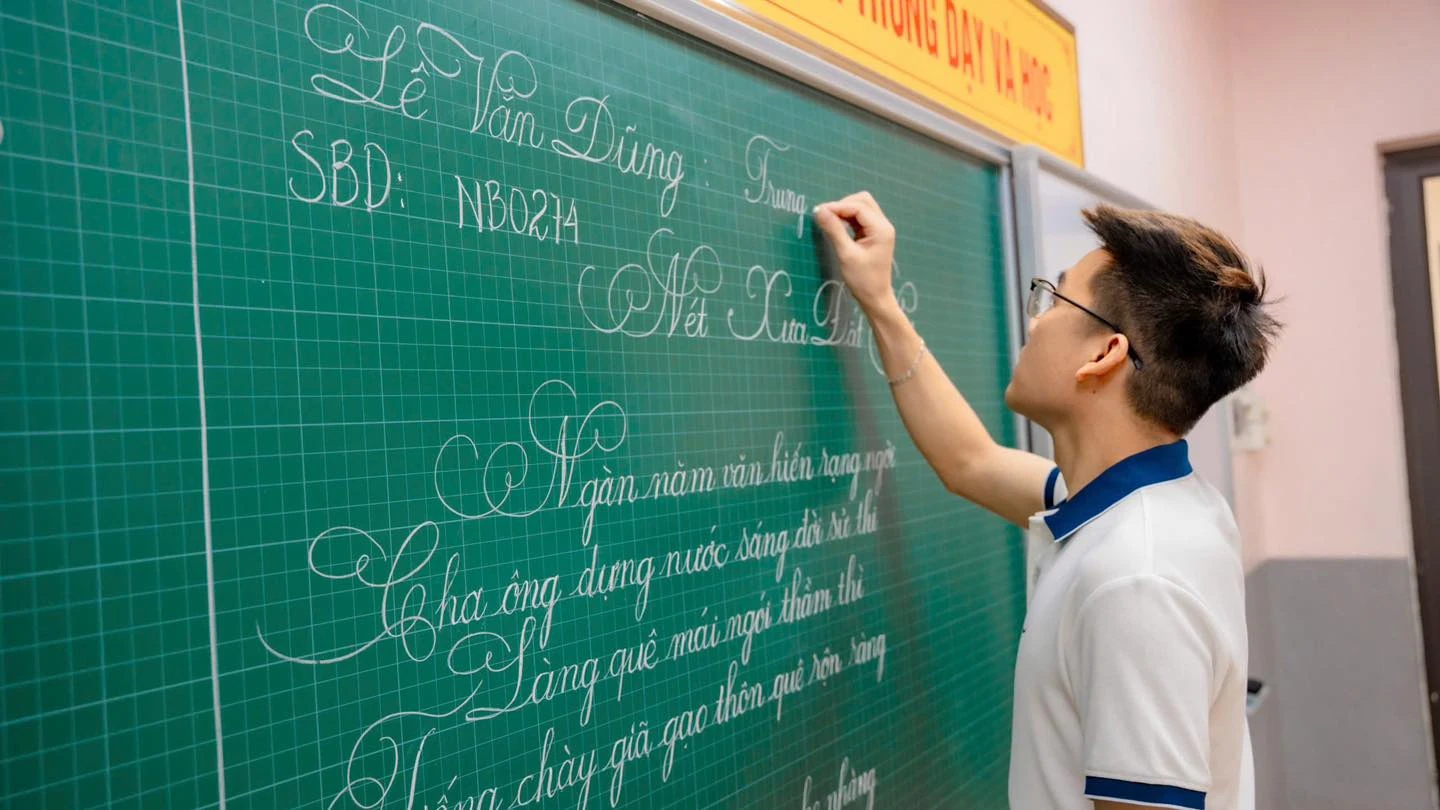 TRONG DẠY VÀ HỌC
Lê Văn Dũng : Trung
SBD: NB0274
Nét Xưa Đất
Ngàn năm văn hiến rạng ngời
Cha ông dựng nước sáng đời sử thi
Làng quê mái ngói thầm thì
Tiếng chày giã gạo thôn quê rộn ràng
nhàng